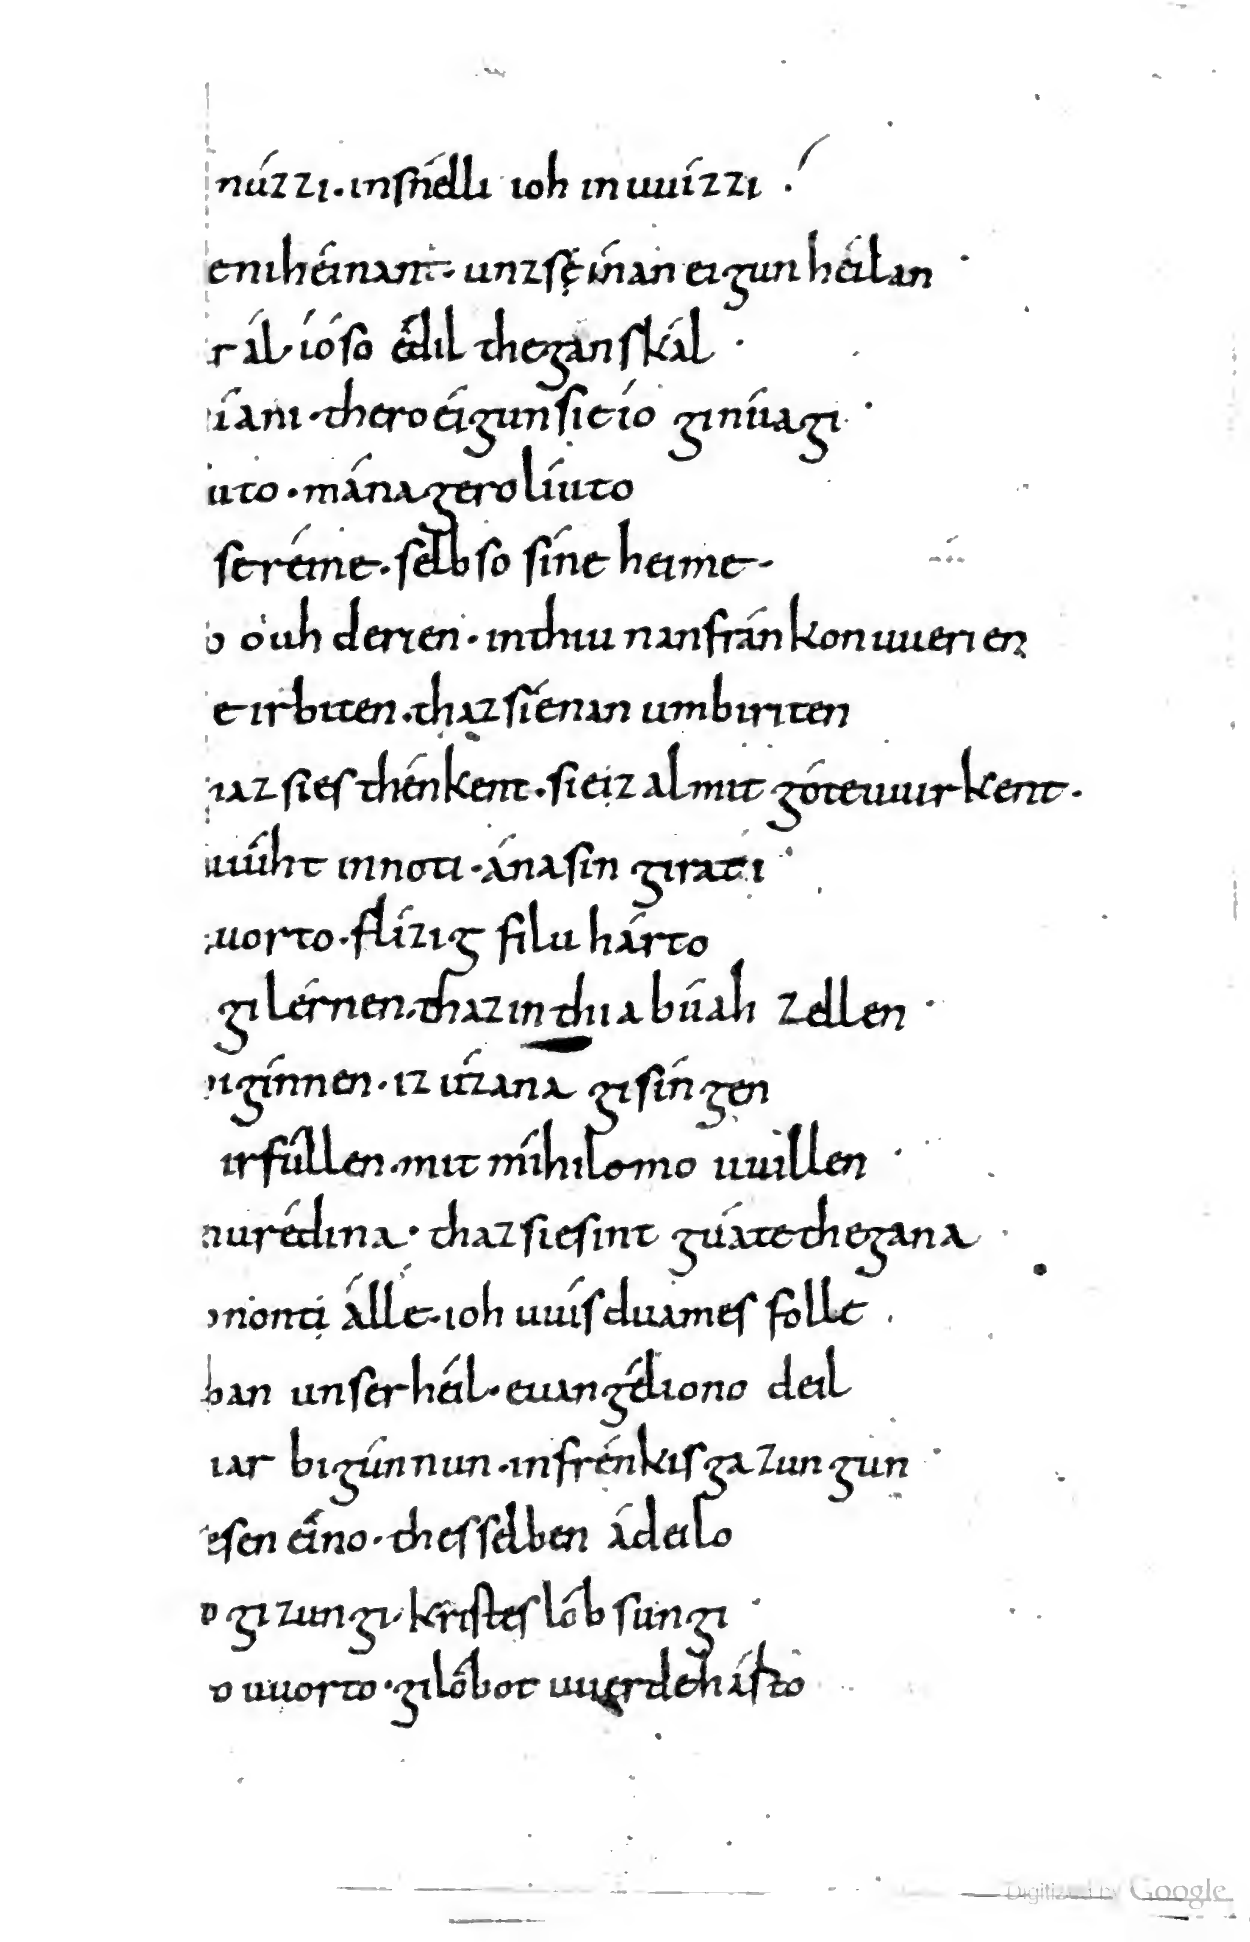 núzzi · in snélli ioh in uuízzi ·
eniheínant · unz sę ínan eigun heílan ·
r ál · íó so édil thegan skál ·
íani · thero eígun sie ío ginúagi ·
uto · mánagero líuto
se réine · selb so síne heime ·
o óuh derien · in thiu nan fránkon uuerien
e irbiten · thaz síe nan umbiriten
az sies thénkent · sie iz al mit góte uuurkent ·
uuíht in noti · ána sin girati
uuorto · flízig filu hárto
gilérnen · thaz in thia búah zellen ·
igínnen · iz úzana gisíngen
irfúllen · mit míhilemo uuillen ·
nu rédina · thaz sie sint gúate thegana ·
nonti álle · ioh uuísduames folle
ban unser heíl · euangéliono deil
iar bigúnnun · in frénkisga zungun ·
esen eíno · thes selben ádeilo
o gizungi · kristes lób sungi ·
o uuorto · gilóbot uuerde hárto
Digitized by Google